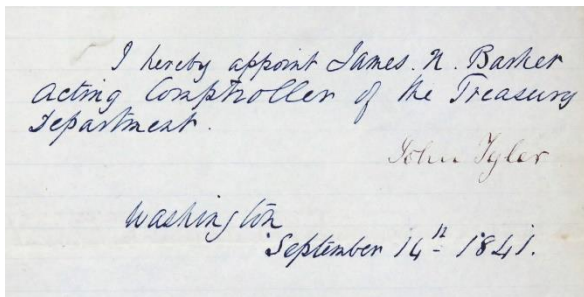 I hereby appoint James. N. Barker
acting Comptroller of the Treasury
Department.
John Tyler
Washington
September 14th 1841.